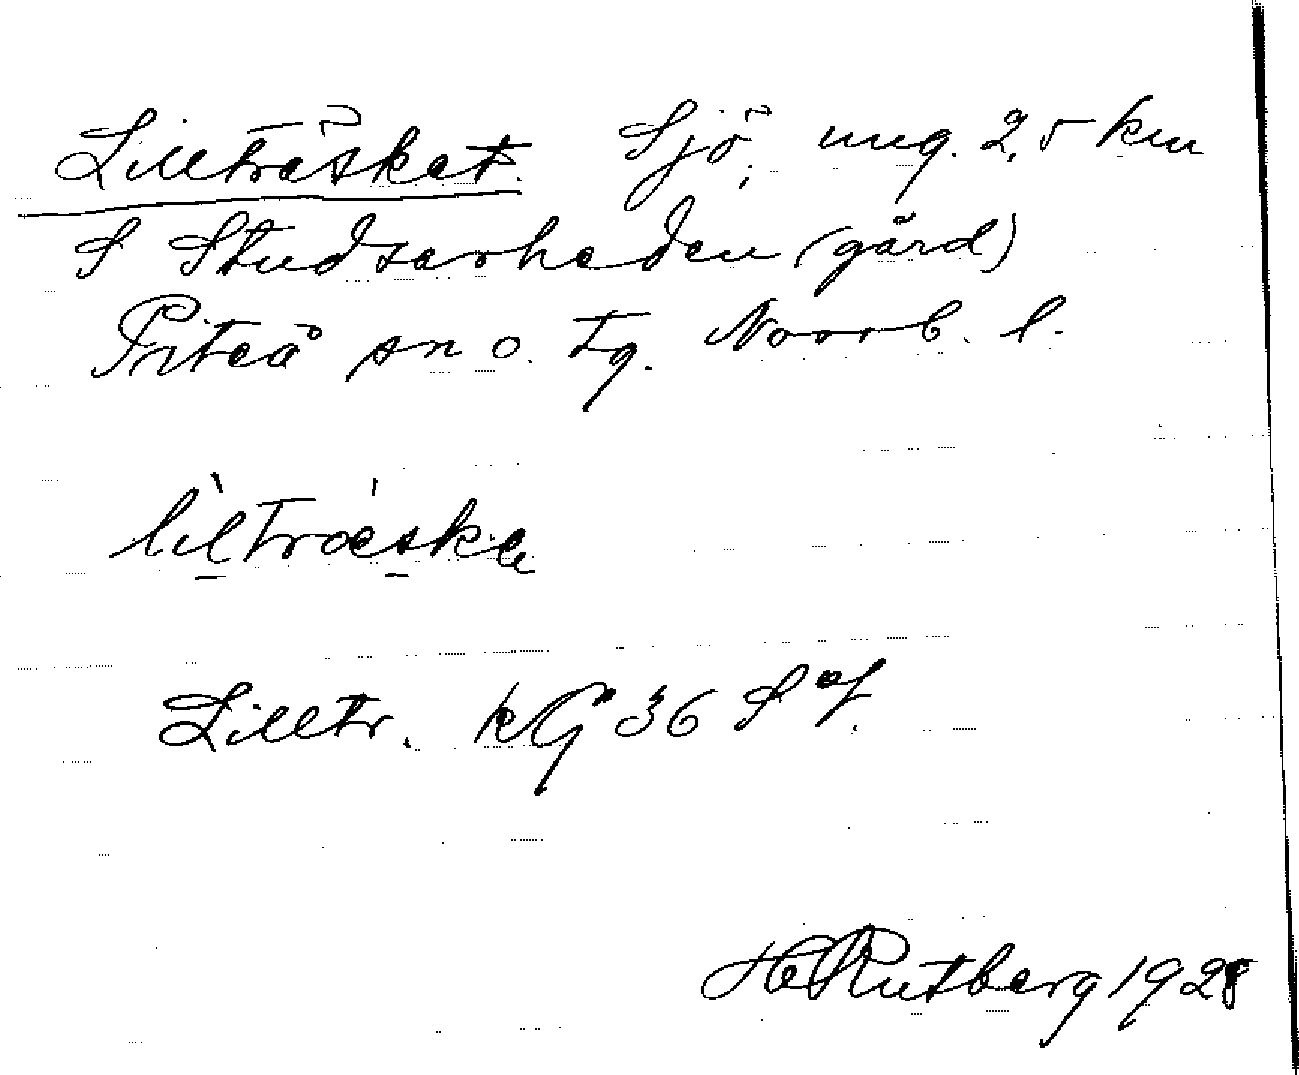 Lillträsket Sjö, ung. 2,5 km
S Studsarheden (gård)
Piteå sn o. tg. Norrb. l.
lìltræ̀ska
Lilltr. KG 36 S of.
H Rutberg 1928